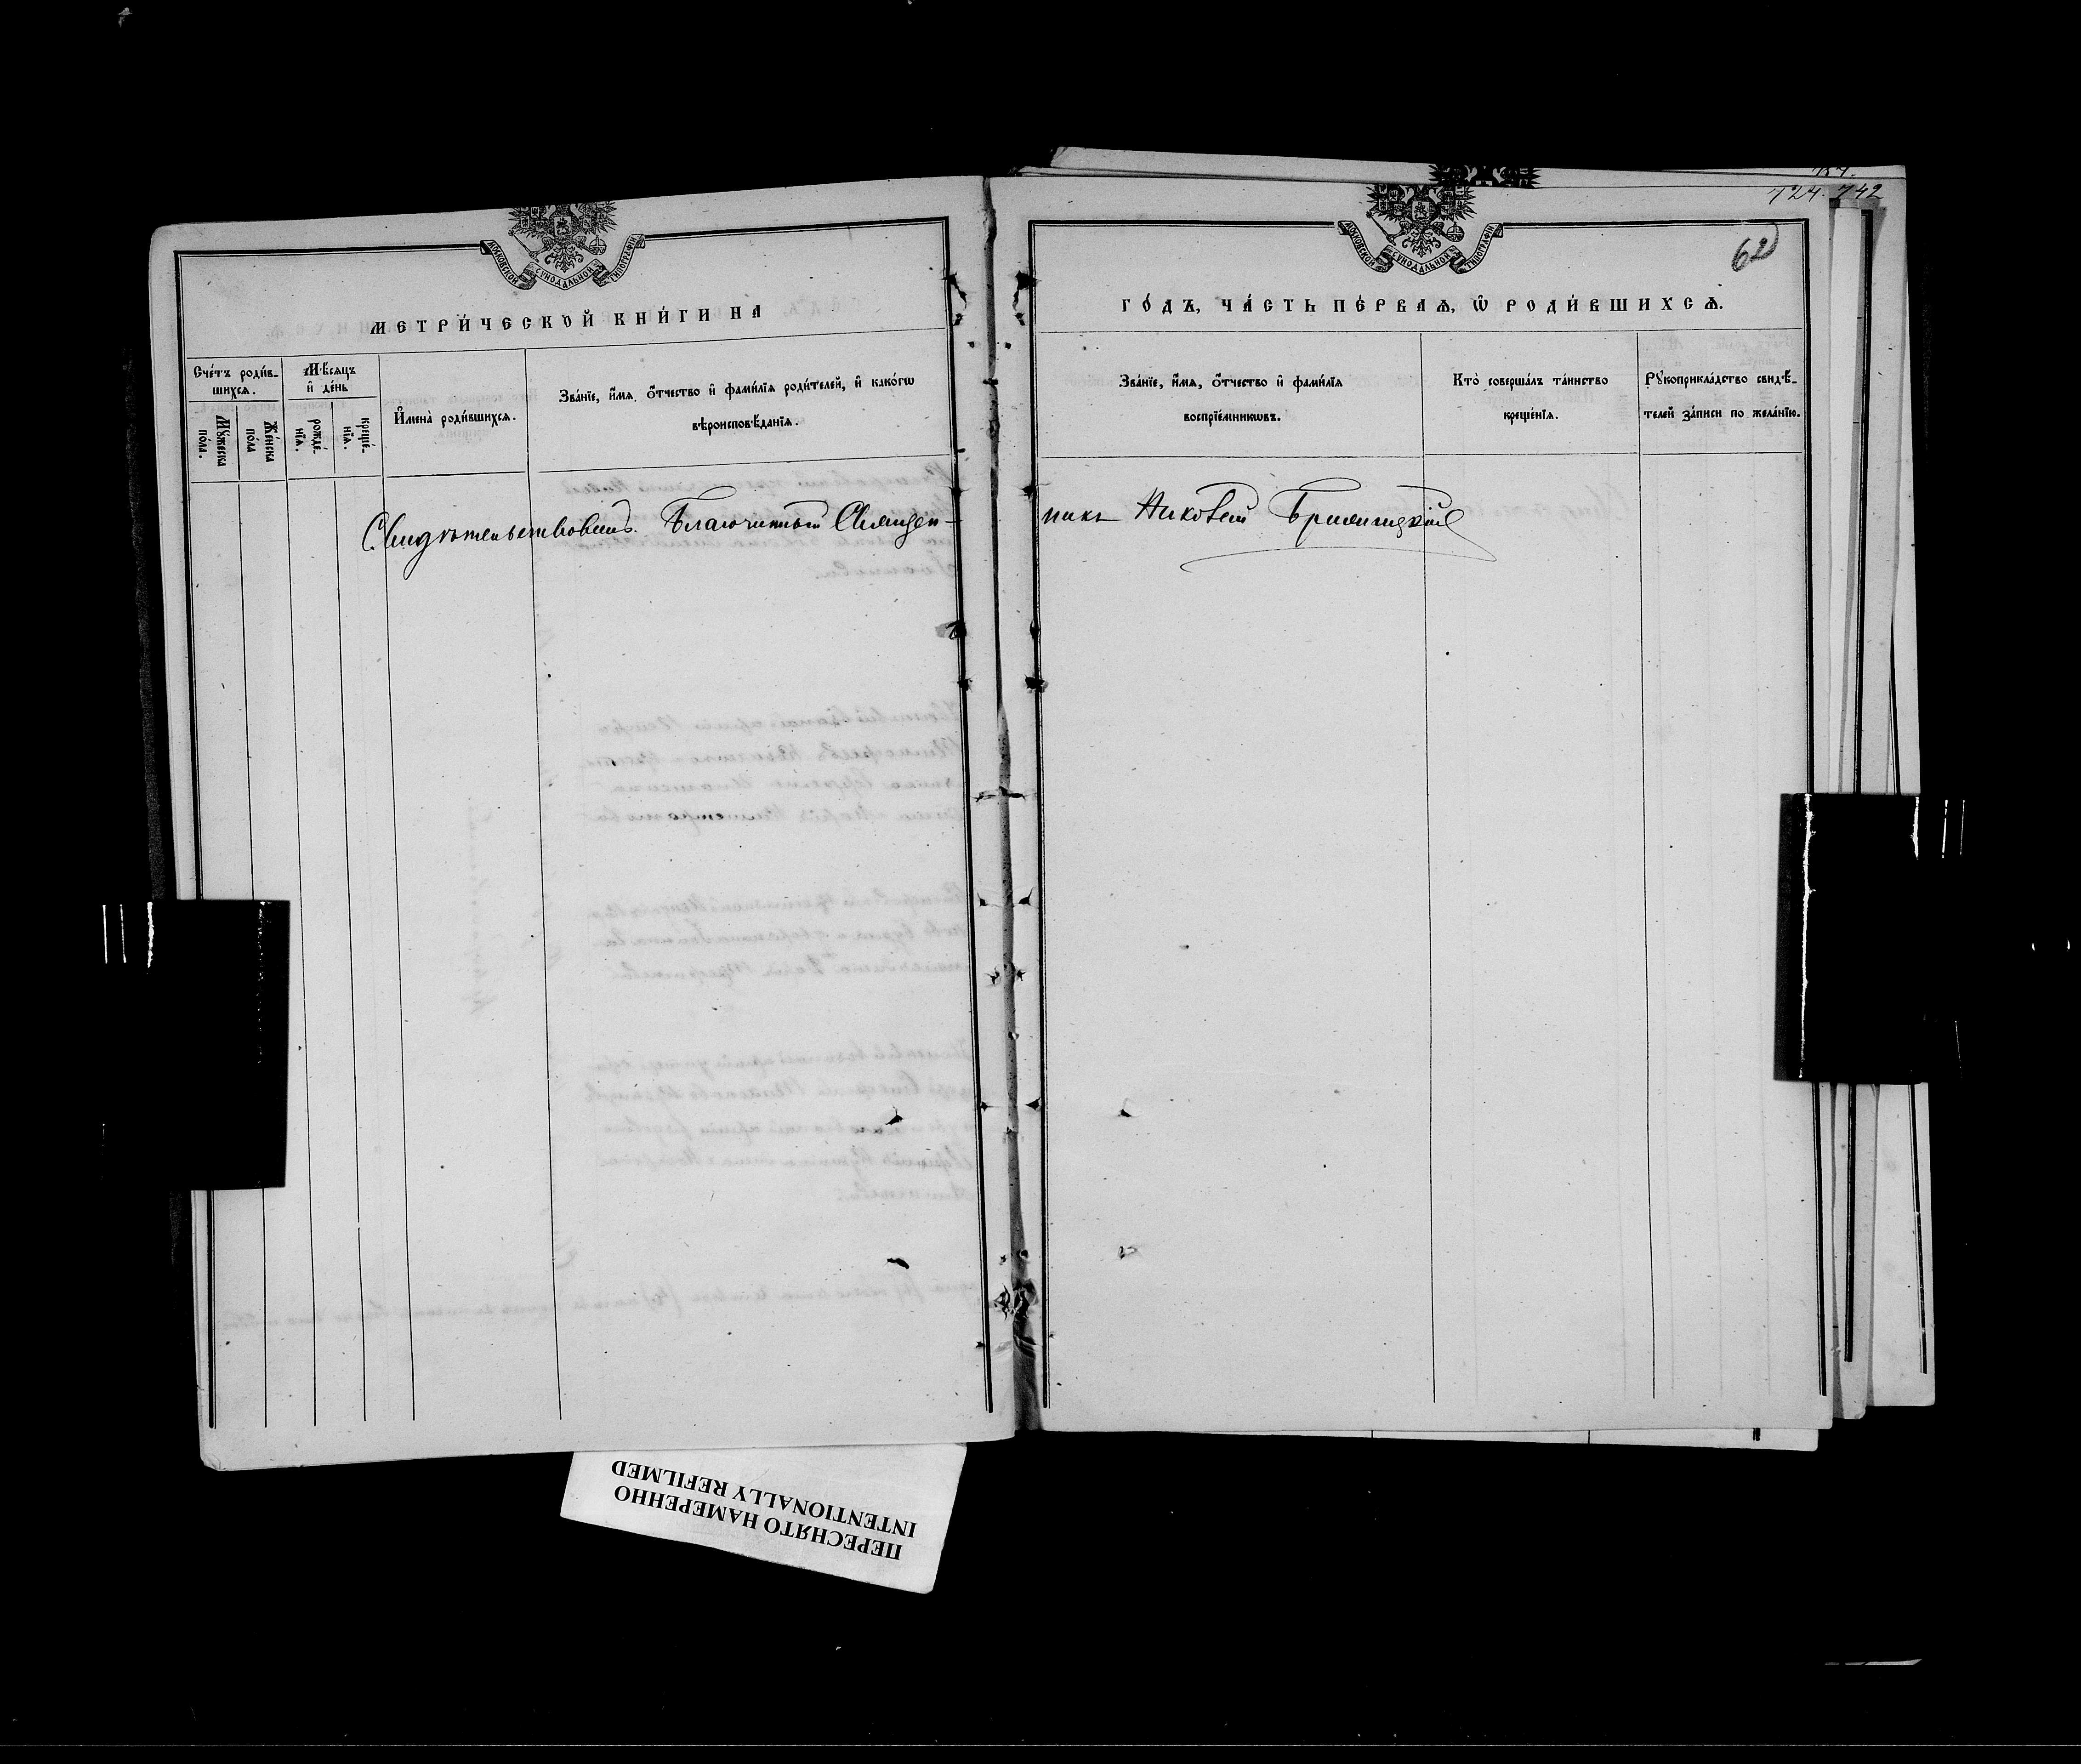 757.
724. 742
62
МОСКОВСКОЙ СУНОДАЛЬНОЙ ТИПОГРАФІИ
МЕТРИ́ЧЕСКОЙ КНИ́ГИ НА
Сче́тъ роди́в-
шихсѧ.
Мꙋ́жеска
по́ла.
Же́нска
по́ла
Мѣ́сяцъ
и҆ де́нь
рожде́-
нїѧ.
креще́-
нїѧ.
И҆мена̀ роди́вшихсѧ.
Зва́нїе, и҆́мѧ, ѻ҆́тчество и҆ фами́лїѧ роди́телей, и҆ како́гѡ
вѣроисповѣ́данїѧ.
Свидѣтельствовалъ. Благочинный Священ-
МОСКОВСКОЙ СУНОДАЛЬНОЙ ТИПОГРАФІИ
ГО́ДЪ, ЧА́СТЬ ПЕ́РВАѦ, Ѡ҆ РОДИ́ВШИХСѦ.
Зва́нїе, и҆́мѧ, ѻ҆́тчество и҆ фами́лїѧ
воспрїе́мникѡвъ.
Кто̀ соверша́лъ та́инство
креще́нїѧ.
Рꙋкоприкла́дство свидѣ́-
телей за́писи по жела́нїю.
никъ
ПЕРЕСНЯТО НАМЕРЕННО
INTENTIONALLY REFILMED